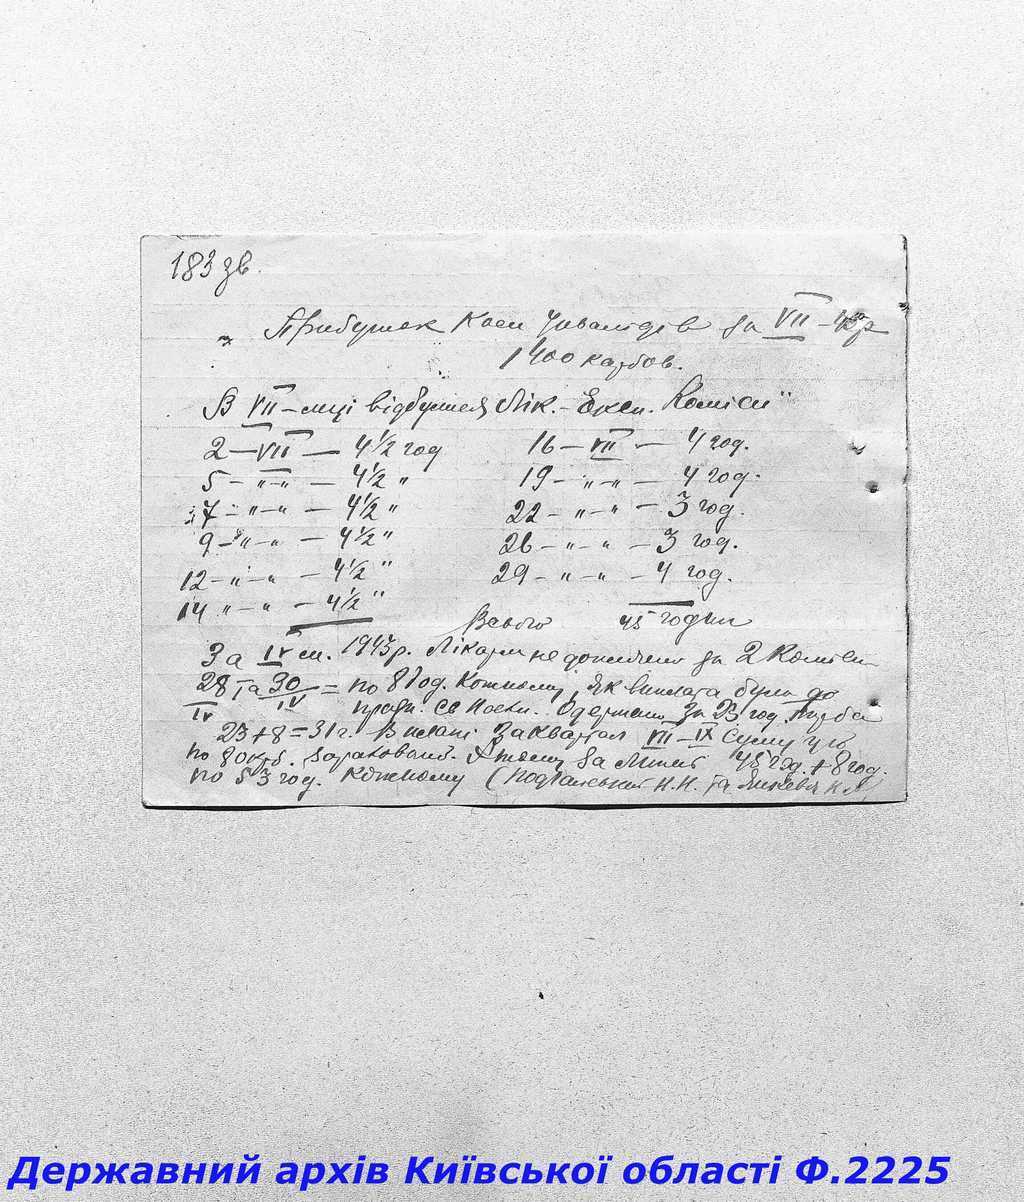 183 зв.
Прибуток Каси Інвалідів за VII – 43 р
1400 карбов.
В VII – місці відбулися Лік. - Експ. Комісії"
2 – VII – 4 1/2 год
5 – „ – „ – 4 1/2 „
7 – „ – „ – 4 1/2 „
9 – „ – „ – 4 1/2 „
12 – „ – „ – 4 1/2 „
14 „ – „ – 4 1/2 „
16 – VII – 4 год.
19 – „ – „ – 4 год.
22 – „ – „ – 3 год.
26 – „ – „ – 3 год.
29 – „ – „ – 4 год.
Всього 45 годин
За IV м. 1943 р. Лікарям не доплачено за 2 Комісії
28/IV та 30/IV = по 8 год. Кожному, як виплата була до
Одержано за 23 год. Треба
23 + 8 = 31 г. В платі За квартал VII – IX суму цю
по 80 крб. зараховано. А тому за Липень 45 год. + 8 год.
по 53 год. Кожному (Подгаєвський Н.Н. та
Державний архів Київської області Ф.2225